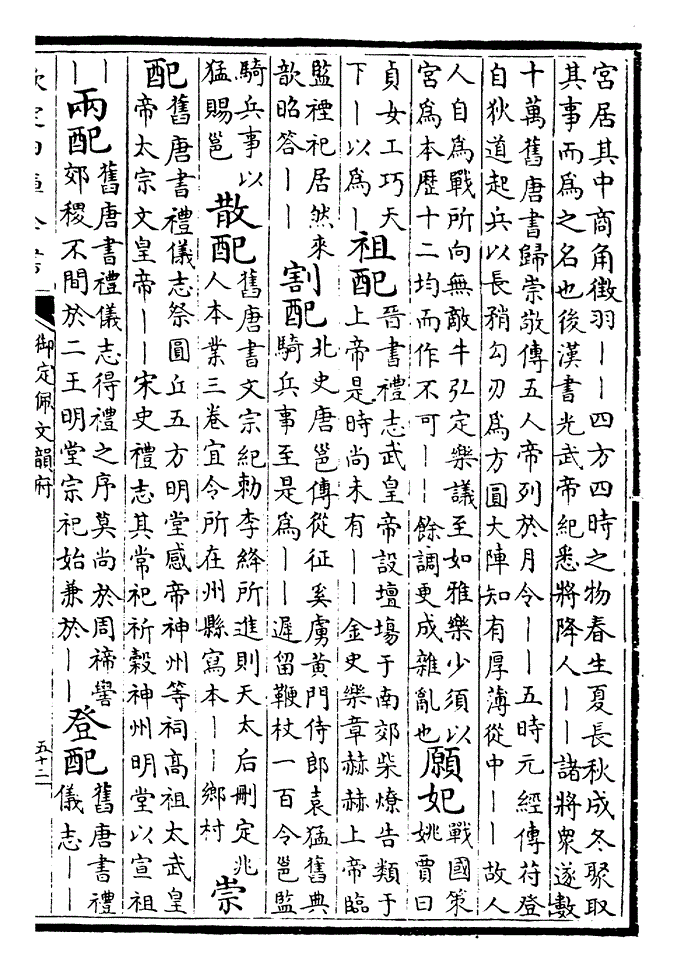 宮居其中商角徵羽丨丨四方四時之物春生夏長秋成冬聚取
其事而為之名也後漢書光武帝紀悉將降人丨丨諸將衆遂數
十萬舊唐書歸崇敬傳五人帝列於月令丨丨五時元經傳苻登
自狄道起兵以長矟勾刃為方圓大陣知有厚薄從中丨丨故人
人自為戰所向無敵牛弘定樂議至如雅樂少須以
宮為本歷十二均而作不可丨丨餘調更成雜亂也
願妃
戰國策
姚賈曰
貞女工巧天
下丨以為丨
祖配
晉書禮志武皇帝設壇場于南郊柴燎告類于
上帝是時尚未有丨丨金史樂章赫赫上帝臨
監禋祀居然來
歆昭答丨丨
割配
北史唐邕傳從征奚虜黃門侍郎袁猛舊典
騎兵事至是為丨丨遲留鞭杖一百令邕監
騎兵事以
猛賜邕
散配
舊唐書文宗紀勅李絳所進則天太后刪定兆
人本業三卷宜令所在州縣寫本丨丨鄉村
崇
配
舊唐書禮儀志祭圓丘五方明堂感帝神州等祠高祖太武皇
帝太宗文皇帝丨丨宋史禮志其常祀祈穀神州明堂以宣祖
丨
丨
兩配
舊唐書禮儀志得禮之序莫尚於周禘嚳
郊稷不間於二王明堂宗祀始兼於丨丨
登配
舊唐書禮
儀志丨丨
欽定四庫全書
御定佩文韻府
五十二